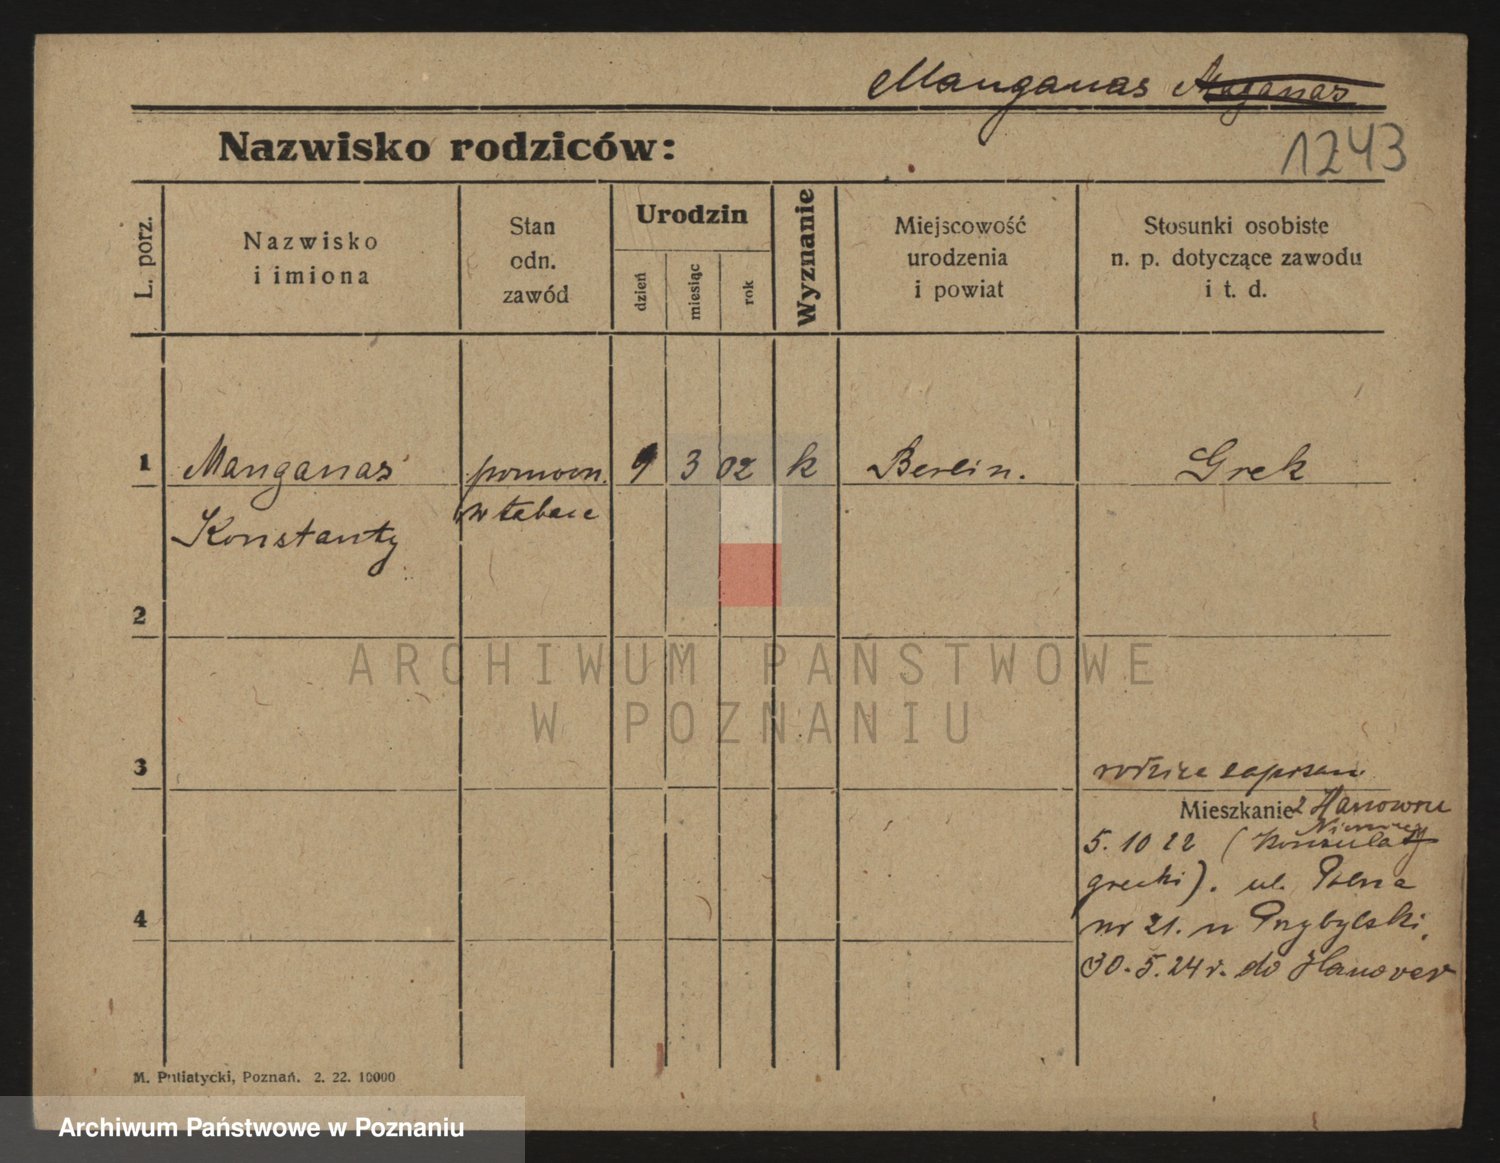 Manganas Maganas
Nazwisko rodziców:
1243
L. porz.
Nazwisko
i imiona
Stan
odn.
zawód
Urodzin
dzień
miesiąc
rok
Wyznanie
Miejscowość
urodzenia
i powiat
Stosunki osobiste
n. p. dotyczące zawodu
i t. d.
1 Manganas pomocn. 9 3 02 k Berlin. Grek
Konstanty w tabace
2
ARCHIWUM PAŃSTWOWE
W POZNANIU
3
rodzice
Mieszkanie z Hanowru
Niemcy
5. 10 22 (Konsulat
grecki). ul. Polna
4
nr 21. u Przybylski.
30. 5. 24 r. do Hanover
M. Putiatycki, Poznań. 2. 22. 10000
Archiwum Państwowe w Poznaniu